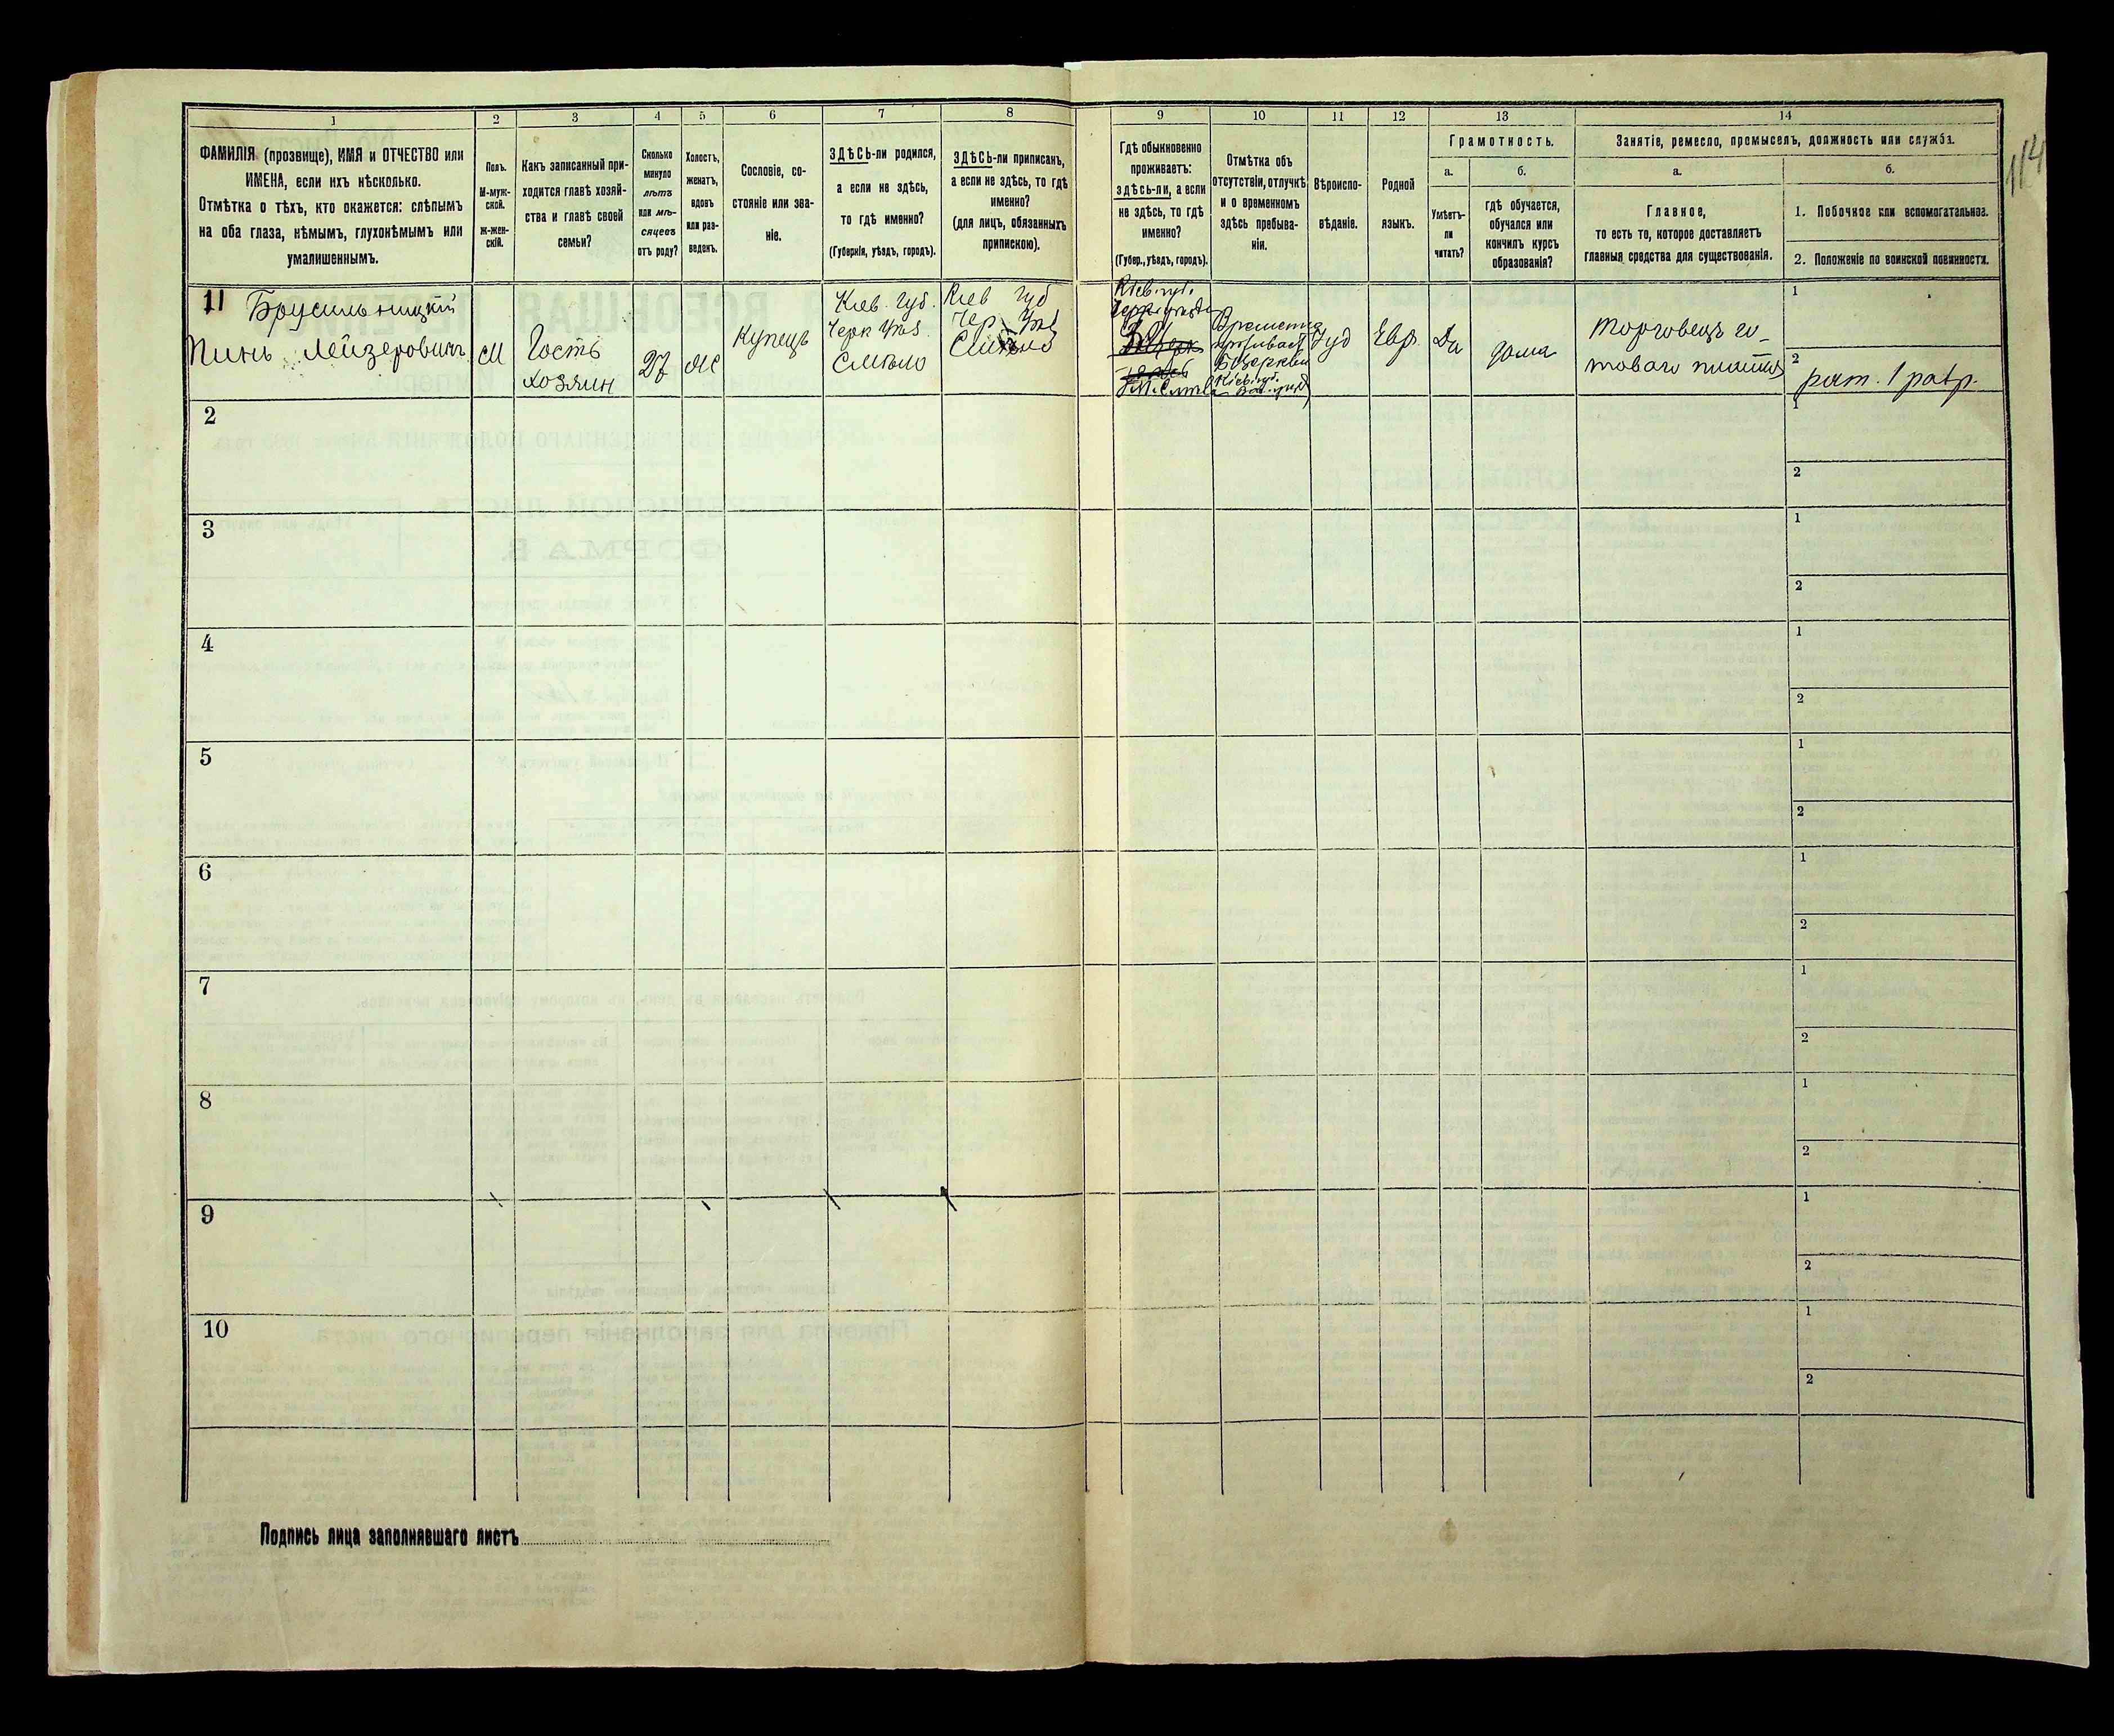 1
2
3
4
5
6
7
8
9
10
11
12
13
14
114
ФАМИЛІЯ (прозвище), ИМЯ и ОТЧЕСТВО или
ИМЕНА, если ихъ нѣсколько.
Отмѣтка о тѣхъ, кто окажется: слѣпымъ
на оба глаза, нѣмымъ, глухонѣмымъ или
умалишеннымъ.
Полъ.
М-муж-
ской.
Ж-жен-
скій.
Какъ записанный при-
ходится главѣ хозяй-
ства и главѣ своей
семьи?
Сколько
минуло
лѣтъ
или мѣ-
сяцевъ
отъ роду?
Холостъ,
женатъ,
вдовъ
или раз-
веденъ.
Сословіе, со-
стояніе или зва-
ніе.
ЗДѢСЬ-ли родился,
а если не здѣсь,
то гдѣ именно?
(Губернія, уѣздъ, городъ).
ЗДѢСЬ-ли приписанъ,
а если не здѣсь, то гдѣ
именно?
(для лицъ, обязанныхъ
припискою).
Гдѣ обыкновенно
проживаетъ:
здѣсь-ли, а если
не здѣсь, то гдѣ
именно?
(Губер., уѣздъ, городъ).
Отмѣтка объ
отсутствіи, отлучкѣ
и о временномъ
здѣсь пребыва-
ніи.
Вѣроиспо-
вѣданіе.
Родной
языкъ.
Грамотность.
а.
Умѣетъ-
ли
читать?
б.
гдѣ обучается,
обучался или
кончилъ курсъ
образованія?
Занятіе, ремесло, промыселъ, должность или служба.
а.
Главное,
то есть то, которое доставляетъ
главныя средства для существованія.
б.
1. Побочное или вспомогательное.
2. Положеніе по воинской повинности.
11 Брусильницкій
Пинь Лейзеровичъ
М
Гость
хозяин
27
Купецъ
Кіев. Губ.
Черк Уѣз.
Смѣло
Кіев Губ
Чер Уѣз
Смѣло
Кіев. губ.
М. Смѣла
Временно
проживает
Бѣ. Церкви
Кіев. губ.
Іуд
Евр
Да
дома
Торговецъ го-
товаго платья
1
2 рат. 1 разр.
2
1
2
3
1
2
4
1
2
5
1
2
6
1
2
7
1
2
8
1
2
9
1
2
10
1
2
Подпись лица заполнявшаго листъ